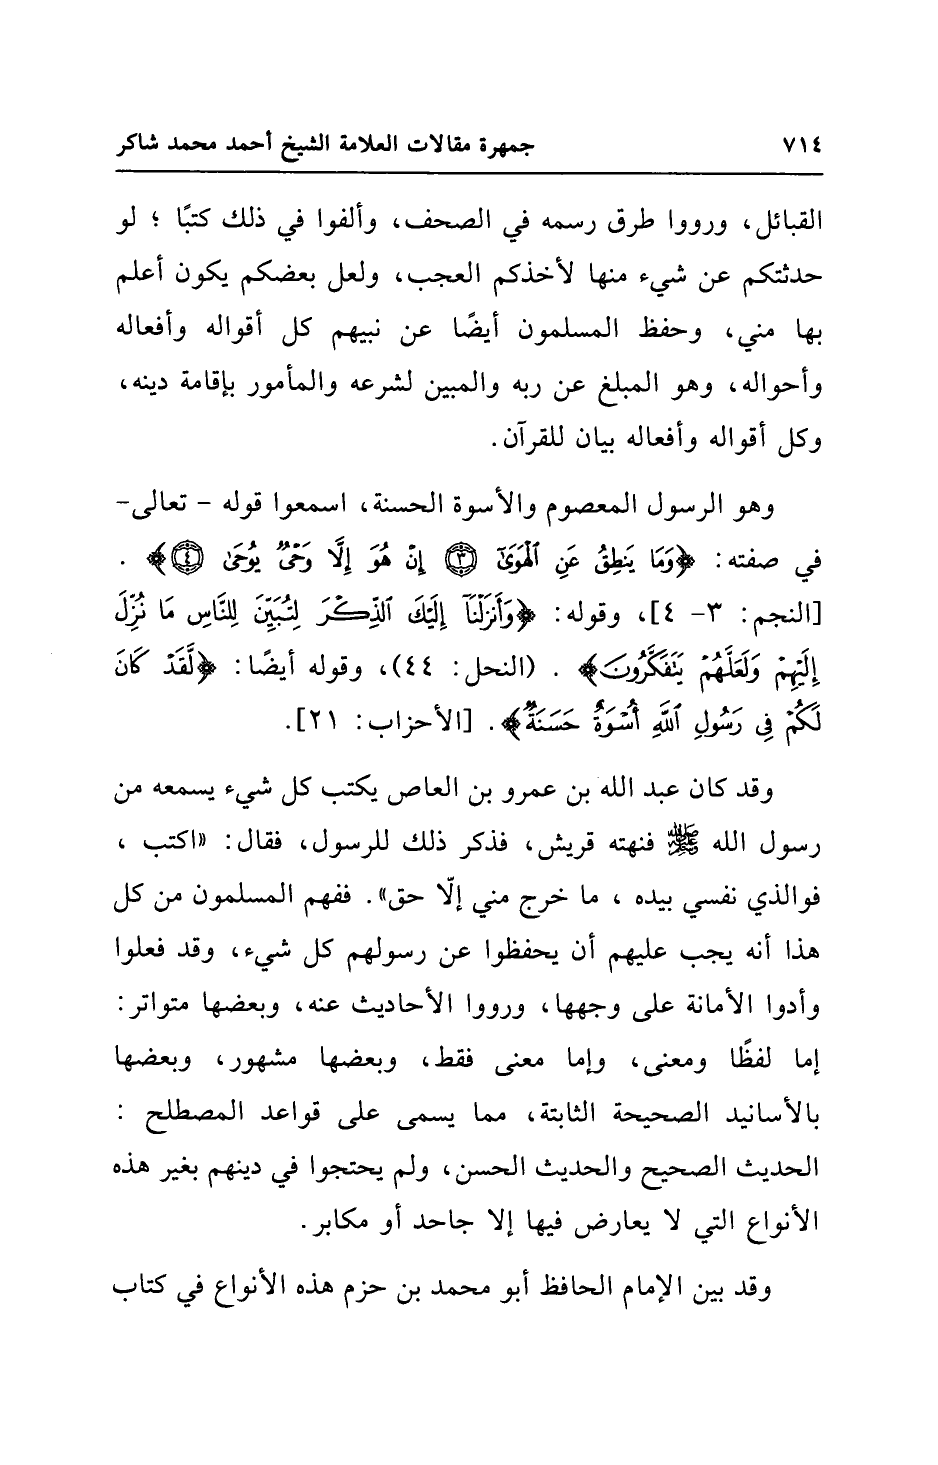 ٧١٤ جمهرة مقالات العلامة الشيخ أحمد محمد شاكر
القبائل، ورووا طرق رسمه في الصحف، وألفوا في ذلك كتبًا ؛ لو
حدثتكم عن شيء منها لأخذكم العجب، ولعل بعضكم يكون أعلم
بها مني، وحفظ المسلمون أيضًا عن نبيهم كل أقواله وأفعاله
وأحواله، وهو المبلغ عن ربه والمبين لشرعه والمأمور بإقامة دينه،
وكل أقواله وأفعاله بيان للقرآن.
وهو الرسول المعصوم والأسوة الحسنة، اسمعوا قوله - تعالى-
في صفته: ﴿وَمَا يَنطِقُ عَنِ ٱلْهَوَىٰٓ ۝٣ إِنْ هُوَ إِلَّا وَحْىٌ يُوحَىٰ ۝٤﴾ .
[النجم: ٣- ٤]، وقوله: ﴿وَأَنزَلْنَآ إِلَيْكَ ٱلذِّكْرَ لِتُبَيِّنَ لِلنَّاسِ مَا نُزِّلَ
إِلَيْهِمْ وَلَعَلَّهُمْ يَتَفَكَّرُونَ﴾ . (النحل: ٤٤)، وقوله أيضًا: ﴿لَّقَدْ كَانَ
لَكُمْ فِى رَسُولِ ٱللَّهِ أُسْوَةٌ حَسَنَةٌ﴾. [الأحزاب: ٢١].
وقد كان عبد الله بن عمرو بن العاص يكتب كل شيء يسمعه من
رسول الله ﷺ فنهته قريش، فذكر ذلك للرسول، فقال: «اكتب ،
فوالذي نفسي بيده ، ما خرج مني إلّا حق». ففهم المسلمون من كل
هذا أنه يجب عليهم أن يحفظوا عن رسولهم كل شيء، وقد فعلوا
وأدوا الأمانة على وجهها، ورووا الأحاديث عنه، وبعضها متواتر:
إما لفظًا ومعنى، وإما معنى فقط، وبعضها مشهور، وبعضها
بالأسانيد الصحيحة الثابتة، مما يسمى على قواعد المصطلح :
الحديث الصحيح والحديث الحسن، ولم يحتجوا في دينهم بغير هذه
الأنواع التي لا يعارض فيها إلا جاحد أو مكابر.
وقد بين الإمام الحافظ أبو محمد بن حزم هذه الأنواع في كتاب